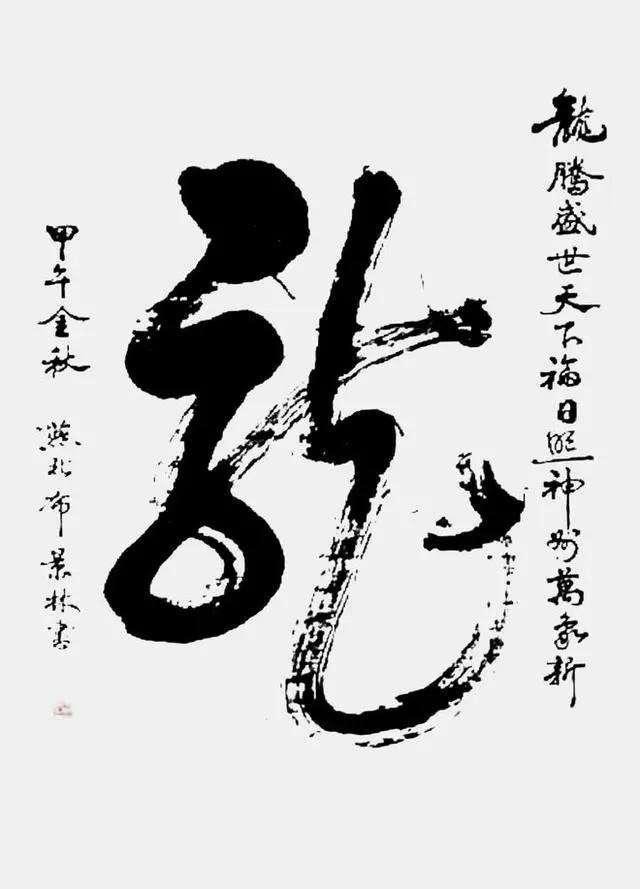 龍騰盛世天下福日照神州萬象新
龍
甲午金秋 燕北布景林書